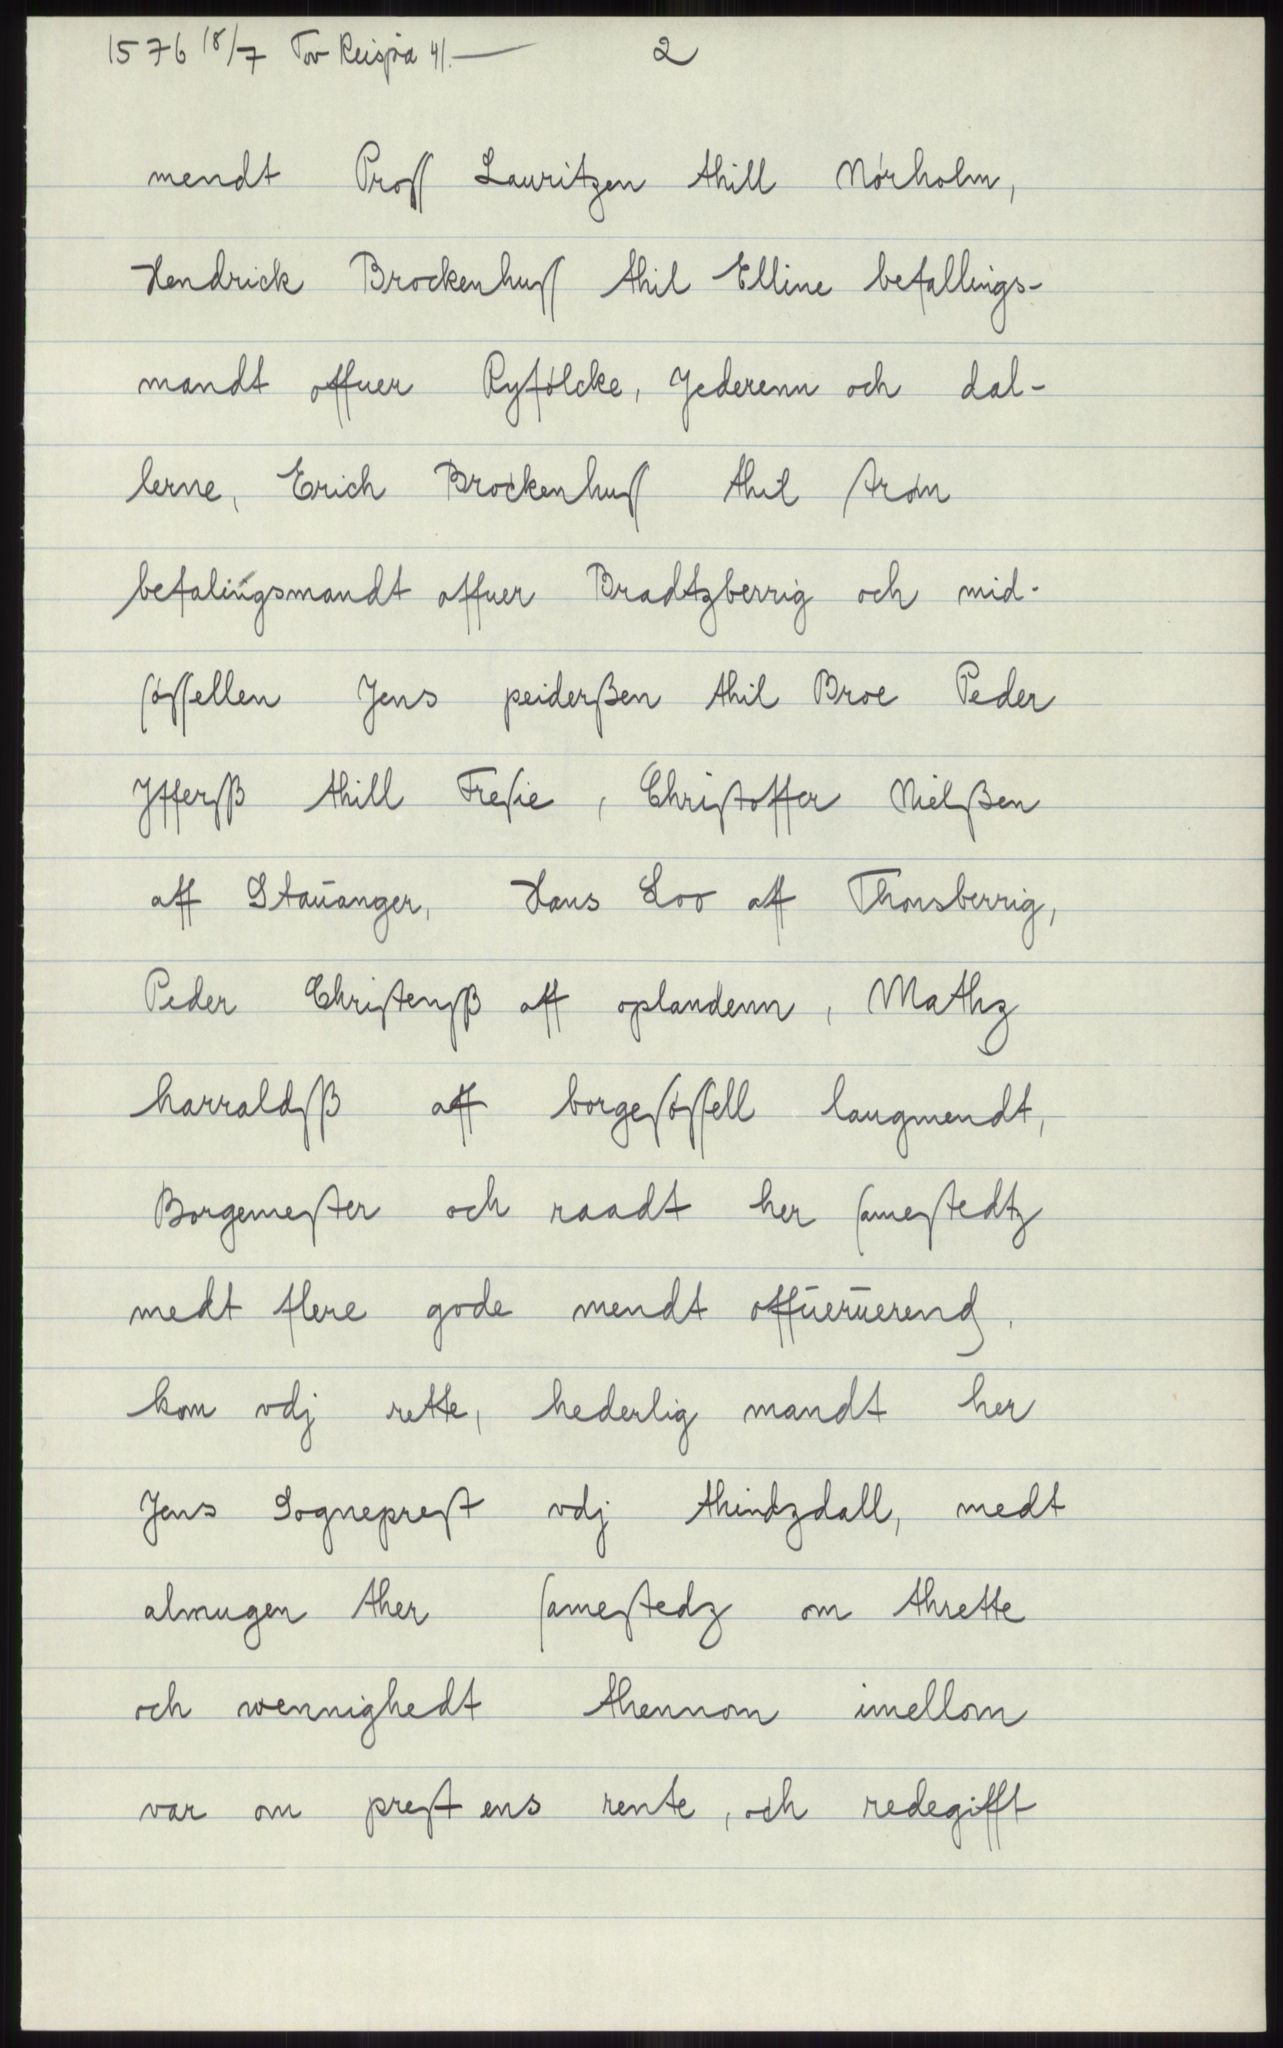 1576 18/7 Tov Reisjra 41.— 2
mendt Proſſ Lauritzen thill Nørholm,
Hendrick Brockenhuſſ thil Elline befallings-
mandt offuer Ryfølcke, Jederenn och dal-
lerne, Erich Brockenhuſſ thil ſtrøm
befalingsmandt offuer Bradtzberrig och mid-
ſøſſellen Jens peiderßen thil Broe Peder
Jfferſß thill Freſie, Chriſtoffer Nielßen
aff Staŭanger, Hans Loo aff Thonsberrig,
Peder Chriſtenſß aff oplandenn, Mathz
harraldſß aff borgeſøſſell laugmendt,
Borgemeſter och raadt her ſameſtedtz
medt flere gode mendt offŭerŭerend,
kom vdj rette, hederlig mandt her
Jens Sognepreſt vdj thindzdall, medt
almugen ther ſameſtedz om threttte
och wennighedt thennom imellom
var om preſtens rente, och redegifft